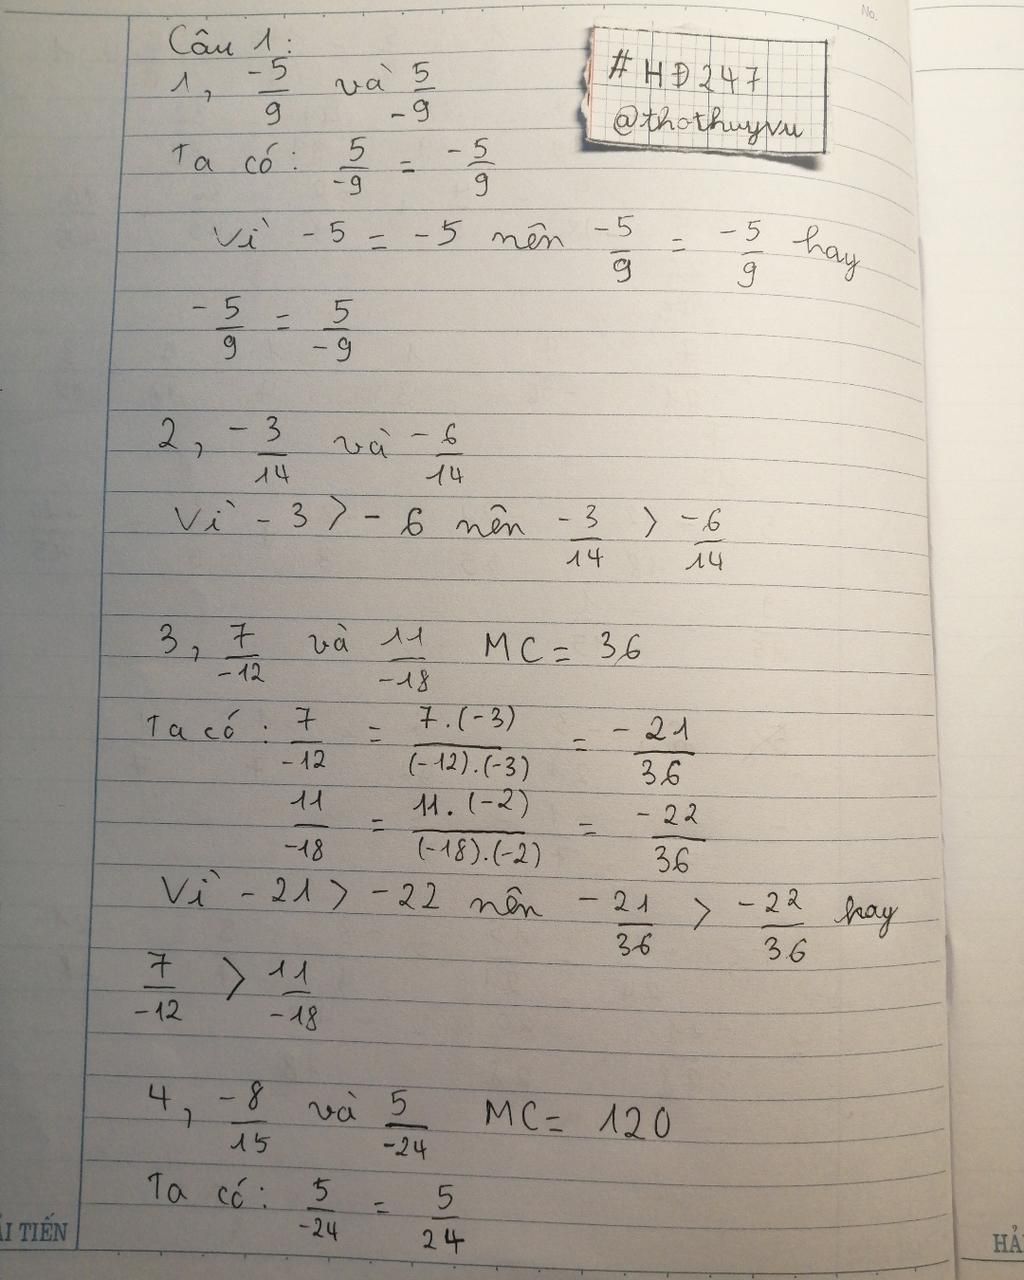 No.
Câu 1:
# HĐ247
@thothuyvu
1, -5/9 và 5/-9
Ta có: 5/-9 = -5/9
Vì -5 = -5 nên -5/9 = -5/9 hay
-5/9 = 5/-9
2, -3/14 và -6/14
Vì -3 > -6 nên -3/14 > -6/14
3, 7/-12 và 11/-18 MC = 36
Ta có: 7/-12 = 7.(-3)/(-12).(-3) = -21/36
11/-18 = 11.(-2)/(-18).(-2) = -22/36
Vì -21 > -22 nên -21/36 > -22/36 hay
7/-12 > 11/-18
4, -8/15 và 5/-24 MC = 120
Ta có: 5/-24 = 5/24
ẢI TIẾN
HẢ